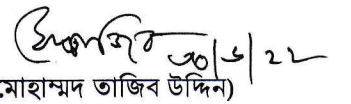 ৩০/৬/২২
মোহাম্মদ তাজিব উদ্দিন)